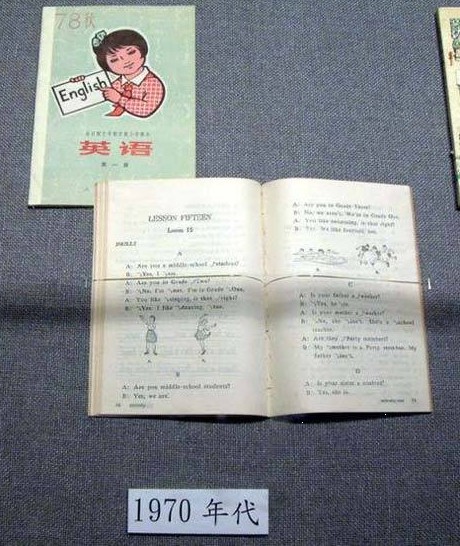 78秋
English
英语
第一册
LESSON FIFTEEN
Lesson 15
DRILLS
A
A: Are you a middle-school student?
B: Yes, I am.
A: Are you in Grade Two?
B: No, I'm not. I'm in Grade One.
A: You like singing, is that right?
B: Yes. I like dancing, too.
B
A: Are you middle-school students?
B: Yes, we are.
A: Are you in Grade Three?
B: No, we aren't. We're in Grade One.
A: You like swimming, is that right?
B: Yes. We like football, too.
C
A: Is your father a worker?
B: Yes, he is.
A: Is your mother a worker?
B: No, she isn't. She's a school
teacher.
A: Are they Party members?
B: My mother is a Party member. My
father isn't.
D
A: Is your sister a student?
B: Yes, she is.
1970 年代